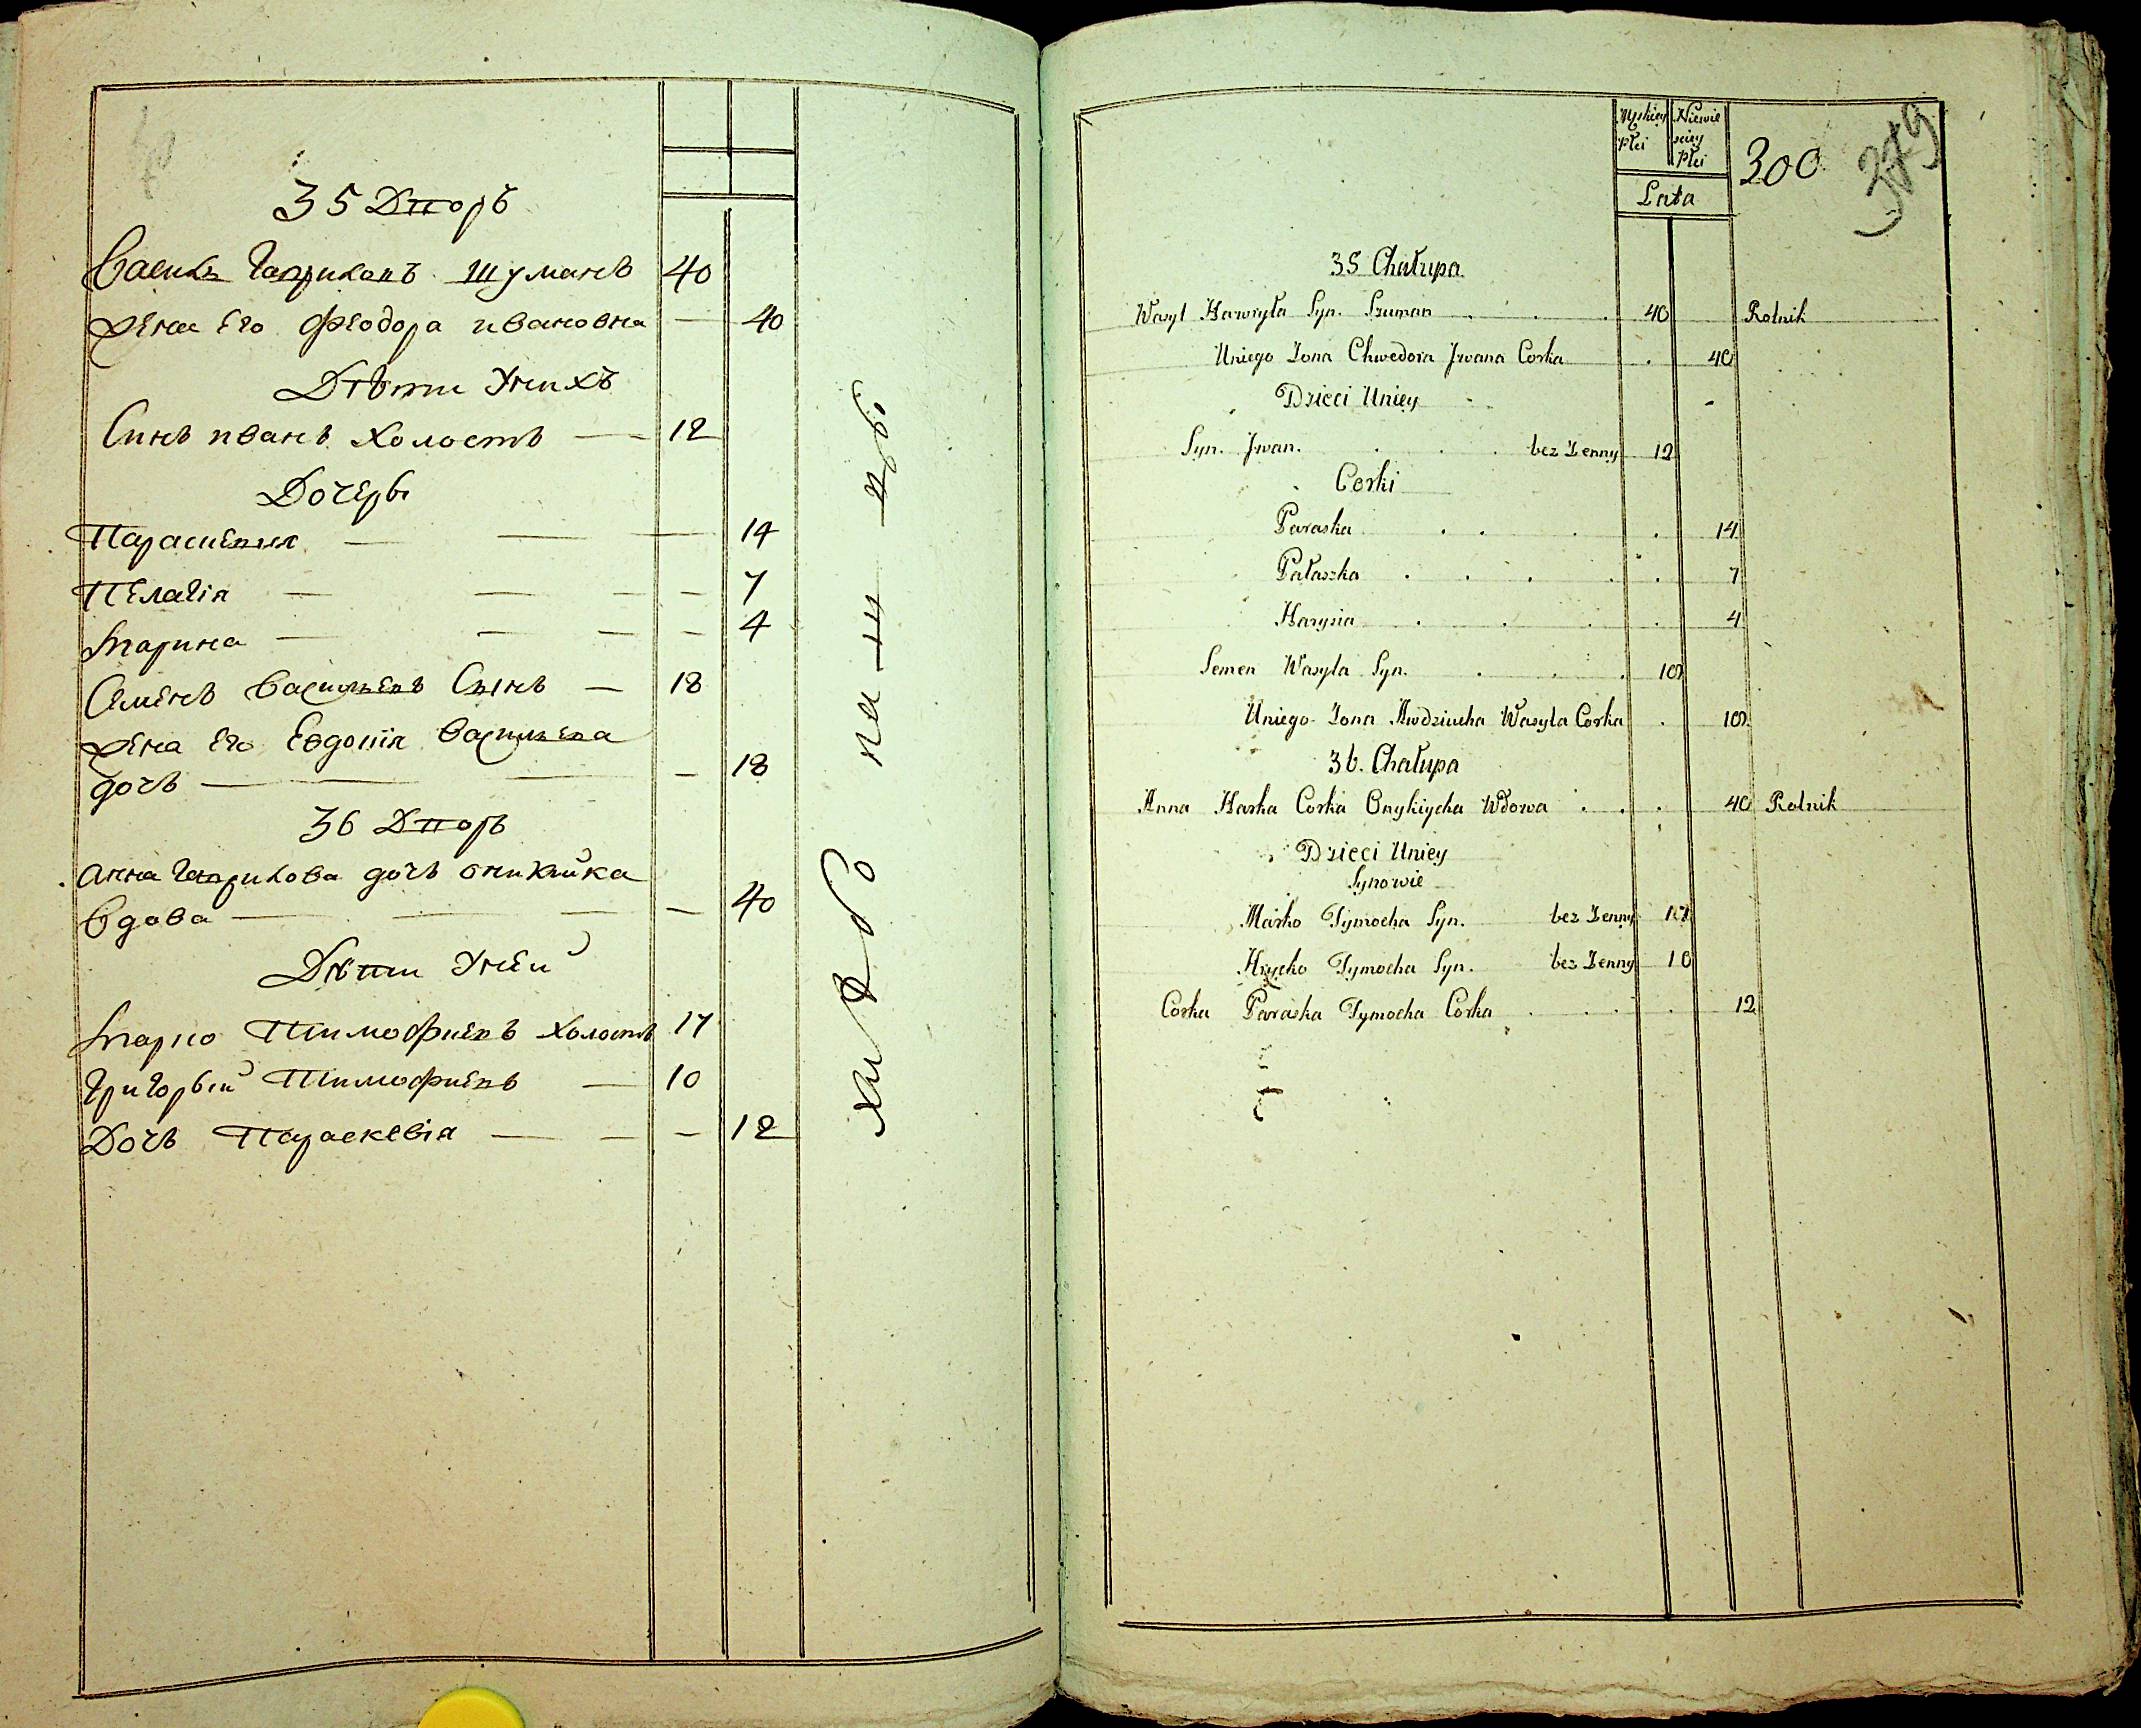 35 Дворъ
Василь Гавриловъ Шуманъ 40
Жена Его Феодора ивановна — 40
Дѣти Унихъ
Синъ иванъ Холостъ — 12
Дочеры
Параскевия — — — 14
Пелагія — — — — 7
Марина — — — — 4
Семенъ Васильевъ Сынъ — 18
Жена Его Евдокия Васильева
дочь — — — — 18
36 Дворъ
Анна Гаврилова дочь оникийка
Вдова — — — — 40
Дѣти Уней
Марко Тимофиевъ Холостъ 17
Григорый Тимофиевъ — 10
Дочь Параскевія — — — 12
Męskiey Płci Niewieściey Płci
Lata
300
379
35 Chałupa
Wasyl Hawryła Syn. Szuman . . . 40 Rolnik
Uniego Żona Chwedora Jwana Corka . 40
Dzieci Uniey
Syn. Jwan. . . . bez Żenny 12
Corki
Paraska . . . . 14
Pałaszka . . . . . 7
Marysia . . . . 4
Semen Wasyla Syn. . . . 18
Uniego Żona Awdziucha Wasyla Corka . 18
36. Chałupa
Anna Harka Corka Onykiycha Wdowa . . . 40 Rolnik
Dzieci Uniey
Synowie
Marko Tymocha Syn. bez Żenny 17
Hrycko Tymocha Syn. bez Żenny 10
Corka Paraska Tymocha Corka . . . . 12